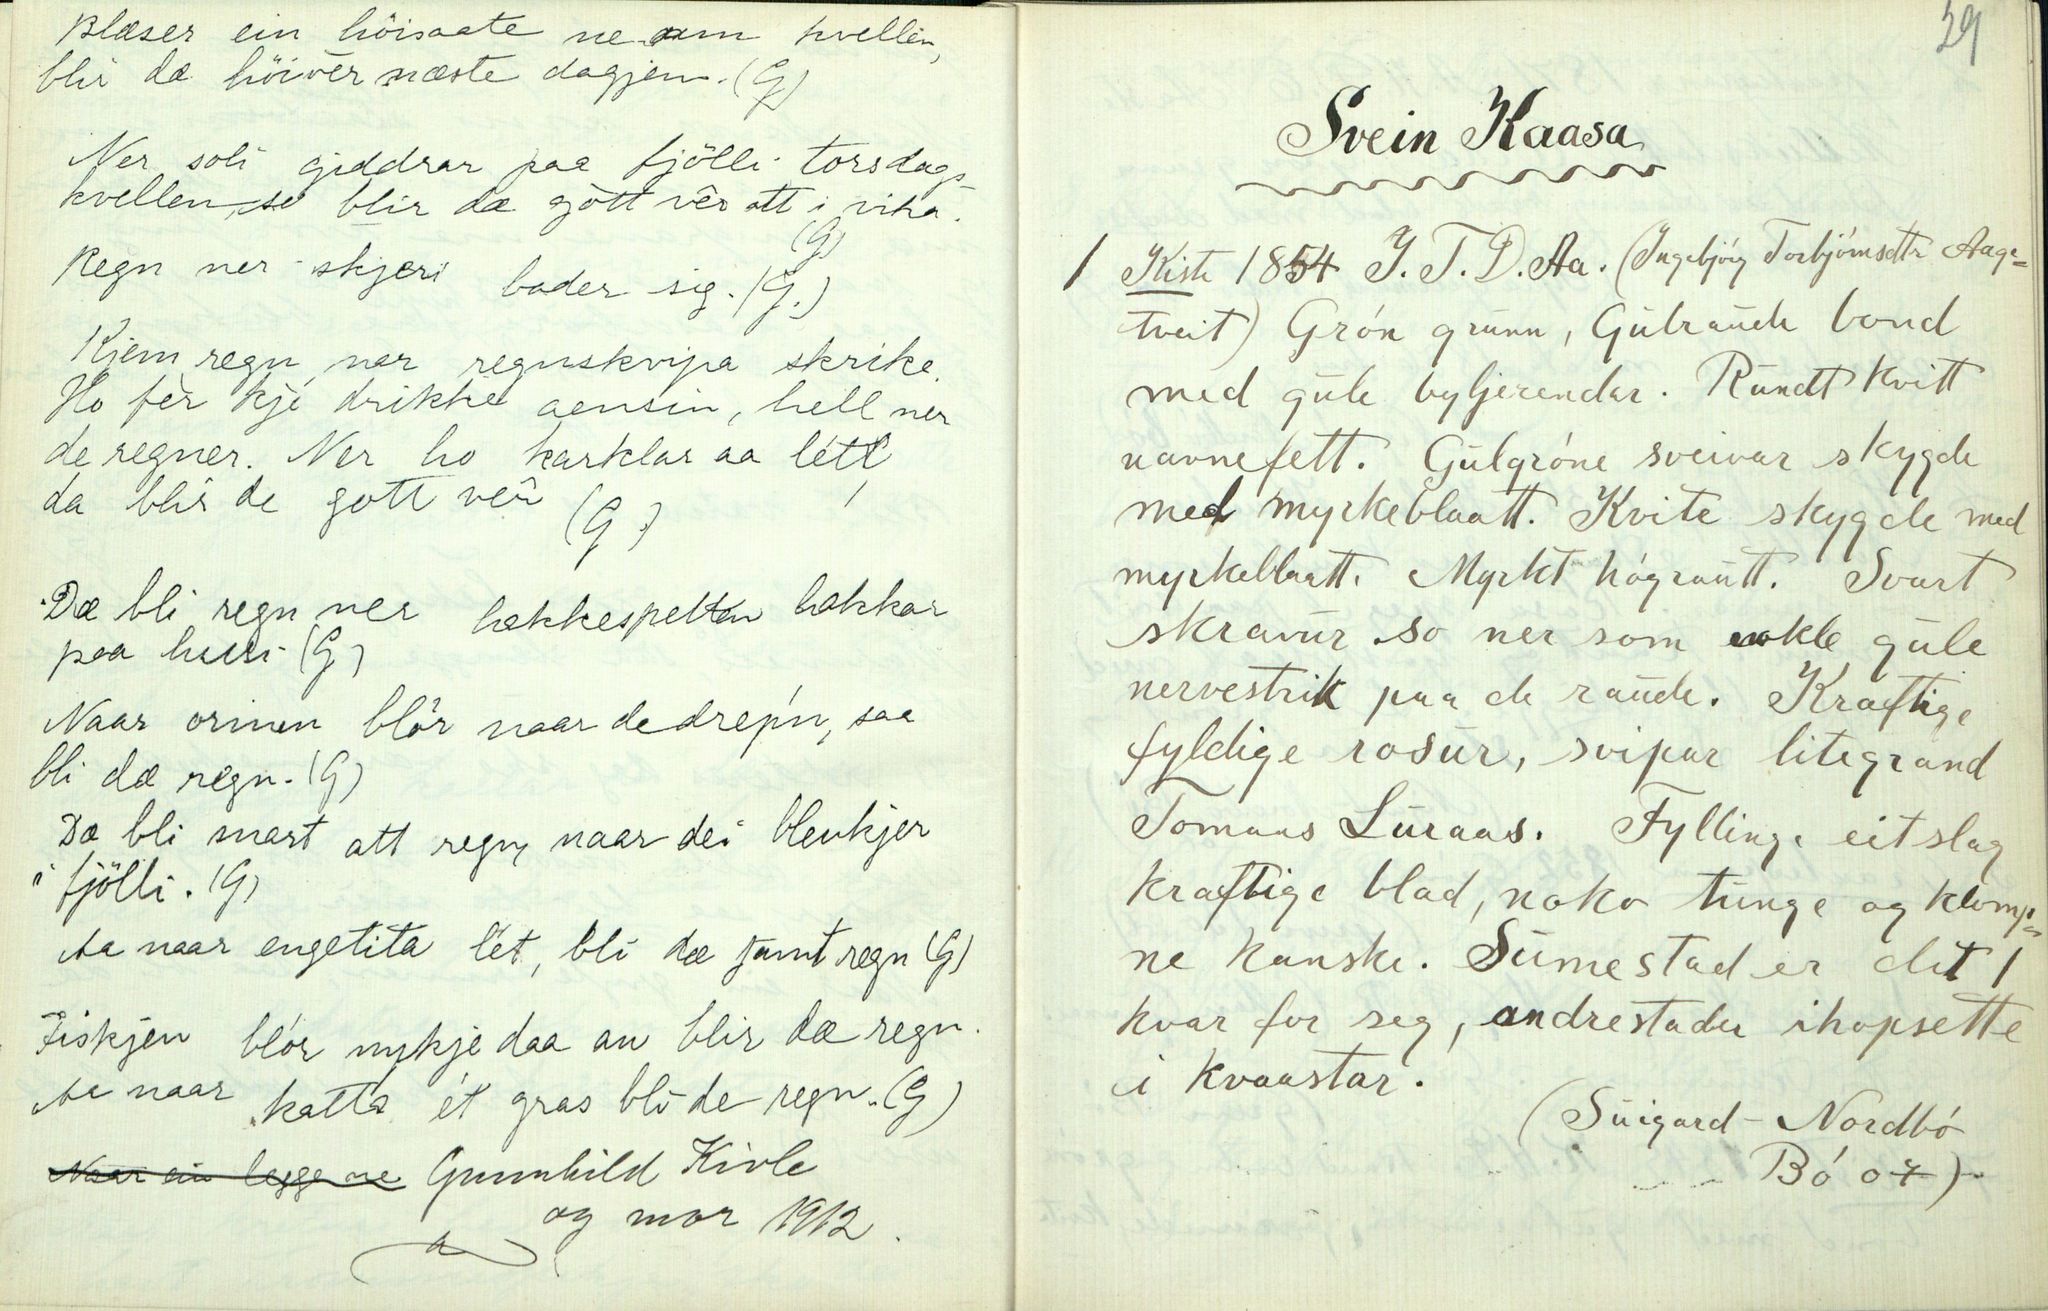 Blæser ein höisaate ne um kvellen,
blir dæ höivêr næste dagjen. (G)
Ner soli giddrar paa fjölli torsdags-
kvellen, se blir dæ gött vêr att i vika.
(G)
Regn ner skjæri bader sig. (G.)
Kjem regn nar regnskvipa skrike.
Ho fèr kje drikke aensin, hell ner
de regner. Ner ho karklar aa lett
da blir de gott vêr (G.)
Dæ bli regn ner hakkespetten hakkar
paa husi (G)
Naar ormen blör naar de drep'n, saa
bli dæ regn. (G)
Dæ bli snart att regn, naar dei bleukjer
i fjölli. (G)
Aa naar engetita lêt, bli dæ jamt regn (G)
Fiskjen blör mykje daa an blir dæ regn.
Aa naar katta ét gras bli de regn. (G)
Naar ein legge ne Gunnhild Kivle
og mor 1912.
29
Svein Kaasa
1 Kiste 1854 I. T. D. Aa. (Ingebjörg Torbjörnsdtr Aage-
tveit) Grön grunn, Gulraude bond
med gule byljerendar. Rundt kvitt
navnefett. Gulgröne sveivar skygde
med myrkeblaatt. Kvite skygde med
myrkeblaatt. Myrkt högrautt. Svart
skravur so ner som enkle gule
nervestrik paa de raude. Kraftige
fyldige rosur, svipar litegrand
Tomaas Luraas. Fylling. eitslag
kraftige blad, noko tunge og klomp-
ne kanske. Sumestad er det 1
kvar for seg, andrestader ihopsette
i kvaastar.
(Suigard - Nordbö
Bö 07)